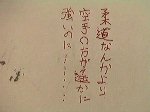 柔道なんかより
空手の方が遥かに
強いのに‥‥‥